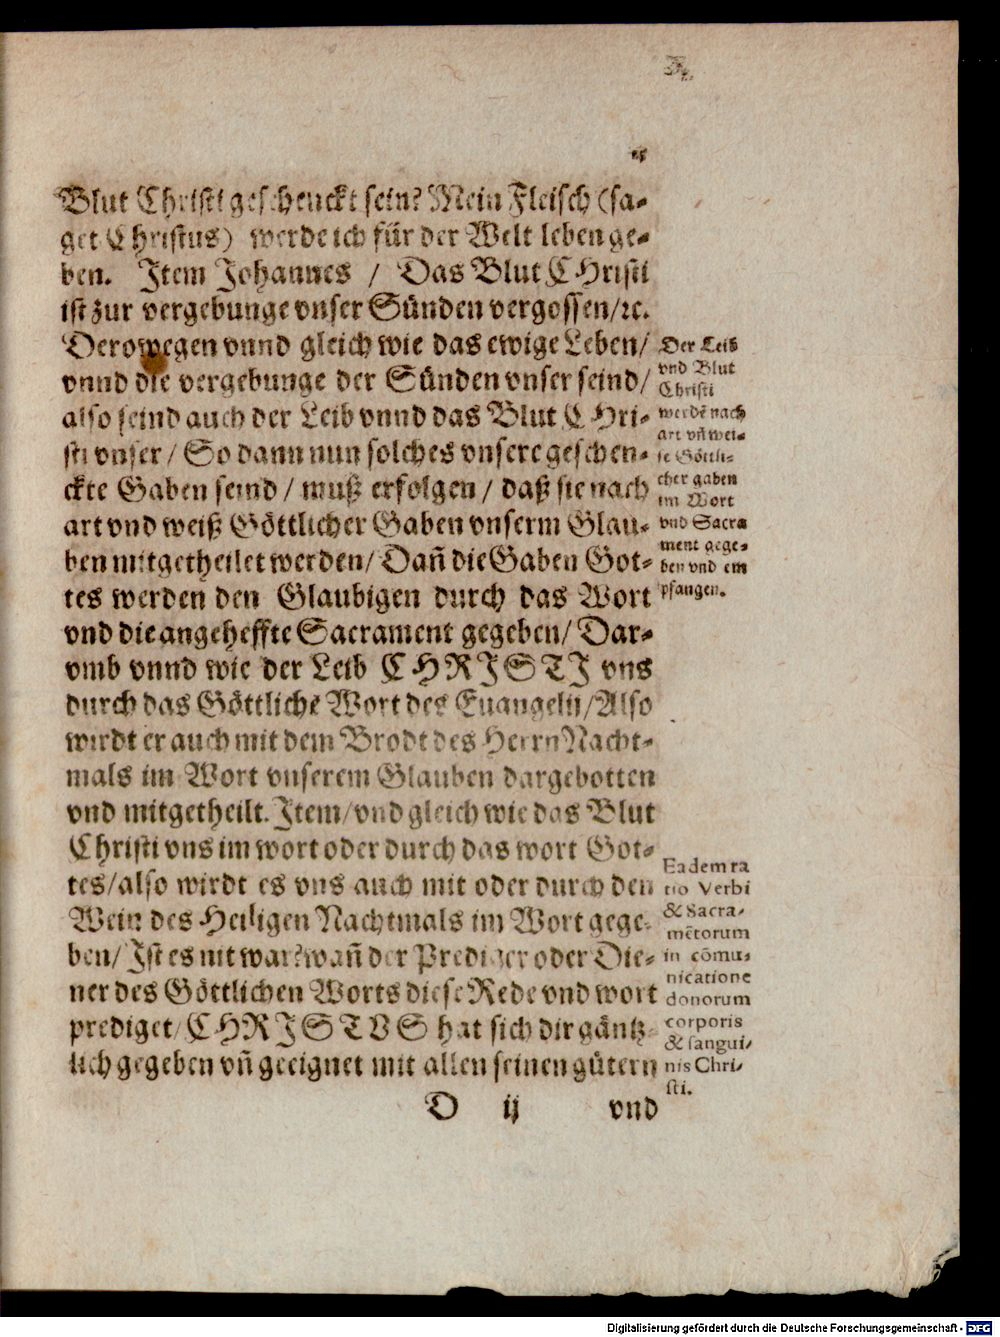 Blut Christi geschenckt sein? Mein Fleisch (sa-
get Christus) werde ich für der Welt leben ge-
ben. Item Johannes / Das Blut CHristi
ist zur vergebunge vnser Sünden vergossen/ꝛc.
Derowegen vnnd gleich wie das ewige Leben/
vnnd die vergebunge der Sünden vnser seind/
also seind auch der Leib vnnd das Blut CHri-
sti vnser / So dann nun solches vnsere geschen-
ckte Gaben seind / muß erfolgen / daß sie nach
art vnd weiß Göttlicher Gaben vnserm Glau-
ben mitgetheilet werden/ Dañ die Gaben Got-
tes werden den Glaubigen durch das Wort
vnd die angeheffte Sacrament gegeben/ Dar-
vmb vnnd wie der Leib CHRISTI vns
durch das Göttliche Wort des Euangelij/Also
wirdt er auch mit dem Brodt des Herrn Nacht-
mals im Wort vnserem Glauben dargebotten
vnd mitgetheilt. Item/vnd gleich wie das Blut
Christi vns im wort oder durch das wort Got-
tes/also wirdt es vns auch mit oder durch den
Wein des Heiligen Nachtmals im Wort gege-
ben/ Ist es nit war? wañ der Prediger oder Die-
ner des Göttlichen Worts diese Rede vnd wort
prediget/ CHRISTVS hat sich dir gäntz-
lich gegeben vñ geeignet mit allen seinen gütern
D ij vnd
Der Leib
vnd Blut
Christi
werdē nach
art vñ wei-
se Göttli-
cher gaben
im Wort
vnd Sacra
ment gege-
ben vnd em
pfangen.
Eadem ra
tio Verbi
& Sacra-
mētorum
in cōmu-
nicatione
donorum
corporis
& sangui-
nis Chri-
sti.
Digitalisierung gefördert durch die Deutsche Forschungsgemeinschaft - DFG